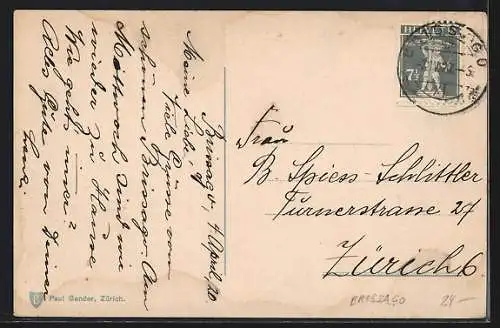 Brissago, 4. April, 20.
Meine Liebe!
Viele Grüsse vom
schönen Brissago. Am
Mittwoch sind wir
wieder zu Hause
Wie geht's immer?
Alles Gute von Deiner
HELVETIA
7½
BRISSAGO
Frau
B. Spiess-Schlittler
Turnerstrasse 27
Zürich 6
Paul Gander, Zürich.
BRISSAGO
24-